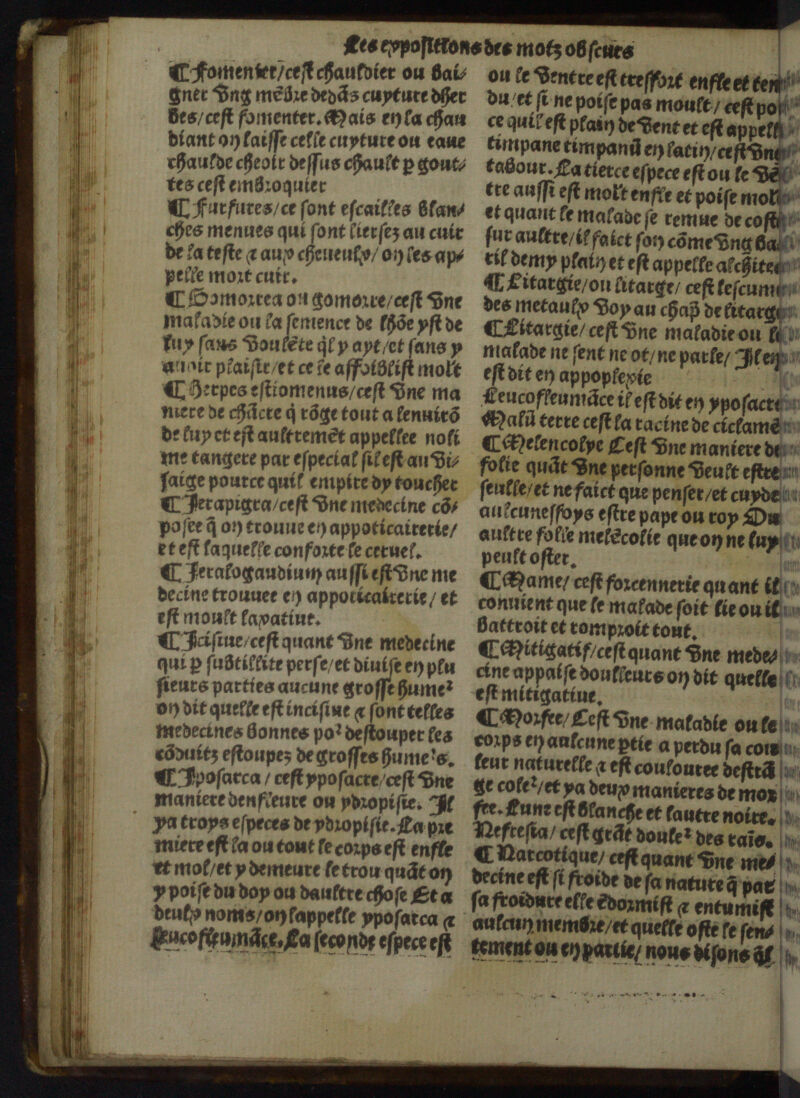 Les expositions des motz obscurs
¶ Fomenter/cest chauldier ou bai⸗
gner vng mẽbre dedãs cuyture dher
bes/cest fomenter. Mais en la chau
diant on laisse celle cuyture ou eaue
chaulde cheoir dessus chault p gout⸗
tes cest embroquier
¶ Furfures/ce sont escailles blan⸗
ches menues qui sont lierses au cuir
de la teste ⁊ aux cheueulx/ on les ap⸗
pelle mort cuir.
¶ Gomorrea ou gomorre/cest vne
maladie ou la semence de lhõe yst de
luy sans voulẽte ql y ayt/et sans y
auoir plaisir/et ce le affoiblist molt
¶ Herpes estiomenus/cest vne ma
niere de chãcre q̃ rõge tout a lenuirõ
de luy et est aultremẽt appellee noli
me tangere par especial sil est au vi⸗
saige pource quil empire dy toucher
¶ Ierapigra/cest vne medecine cõ⸗
posee q̃ on trouue en appoticairerie/
et est laquelle conforte le ceruel.
¶ Ieralogaudium aussi est vne me
decine trouuee en appoticairerie/ et
est moult laxatiue.
¶ Icisiue/cest quant vne medecine
qui p subtillite perse/et diuise en plu
sieurs parties aucune grosse hume²
on dit quelle est incisiue ⁊ sont telles
medecines bonnes po² destouper les
cõduitz estoupez de grosses hume²s.
¶ Iposarca / cest yposacre/cest vne
maniere denfleure ou ydropisie. Il
ya troys especes de ydropisie. La pre
miere est la ou tout le corps est enfle
et mol/et y demeure le trou quãt on
y poise du doy ou daultre chose Et a
deulx noms/on lappelle yposarca ⁊
leucofleumãce. La seconde espece est
ou le ventre est tresfort enfle et
du/et si ne poise pas moult/ cest
ce quil est plain de vent et est
timpane timpanũ en latin/cest vng
tabour. La tierce espece est ou le vẽ
tre aussi est molt enfle et poise molt
et quant le malade se remue de coste
sur aultre/il faict son cõme vng ba
ril demy plain et est appelle alchites
¶ Litargie/ou litarge/ cest lescume
des metaulx voy au chap̃ de litarge
¶ Litargie/ cest vne maladie ou le
malade ne sent ne ot/ne parle/ Il
est dit en appoplexie
Leucofleumãce il est dit en yposacre
Malũ terre cest la racine de ciclamẽ
¶ Melencolye Cest vne maniere de
folie quãt vne personne veult estre
seulle/et ne faict que penser/et cuyde
aulcuneffoys estre pape ou roy Du
aultre folie melẽcolie que on ne luy
peult oster.
¶ Mame/ cest forcennerie quant il
conuient que le malade soit lie ou il
battroit et romproit tout.
¶ Mitigatif/cest quant vne mede⸗
cine appaise doulleurs on dit quelle
est mitigatiue.
¶ Morfee/ Cest vne maladie ou le
corps en aulcune ptie a perdu sa cou
leur naturelle ⁊ est coulouree destrã
ge cole²/et ya deux manieres de mor
fee. Lune est blanche et lautre noire.
Nefresia/ cest grãt doule² des raĩs.
¶ Narcotique/ cest quant vne me⸗
decine est si froide de sa nature q̃ par
sa froidure elle ẽdormist ⁊ entumist
aulcun membre/et quelle oste le sen⸗
tement ou en partie/ nous disons q̃l